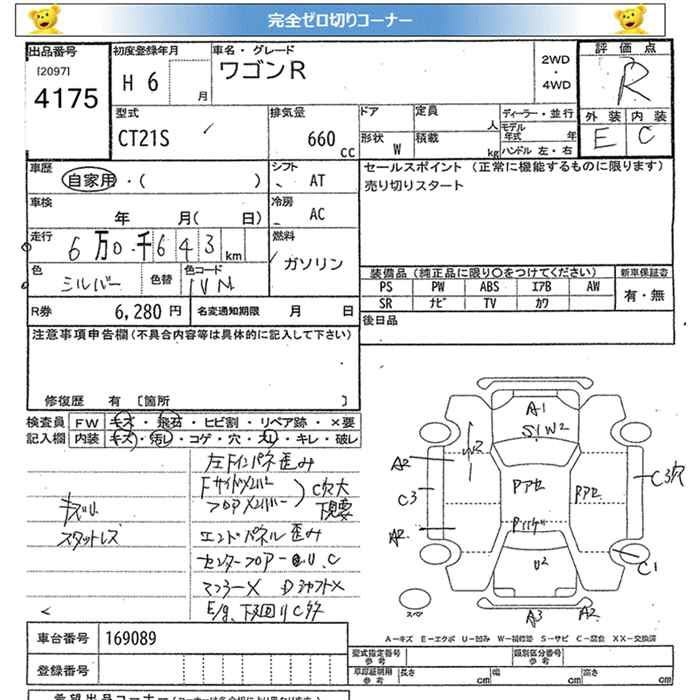 完全ゼロ切りコーナー
出品番号 初度登録年月 車名・グレード 評価点
[2097]
4175 H 6 月 ワゴンR 2WD・4WD R
型式 排気量 ドア 定員 人 ディーラー・並行 外装 内装
CT21S 660 cc 形状 W 積載 kg モデル年式 年 E C
ハンドル 左・右
車歴 シフト セールスポイント (正常に機能するものに限ります)
自家用・( ) AT 売り切りスタート
車検 年 月( 日) 冷房 AC
走行 6万0千643km 燃料 ガソリン
色 シルバー 色替 色コード 装備品(純正品に限り〇をつけてください) 新車保証書
PS PW ABS エアB AW 有・無
SR ナビ TV カワ
R券 6,280円 名変通知期限 月 日 後日品
注意事項申告欄(不具合内容等は具体的に記入して下さい)
修復歴 有 [箇所 ]
検査員 FW キズ・飛石・ヒビ割・リペア跡・×要
記入欄 内装 キズ・汚レ・コゲ・穴・丸・キレ・破レ
左Fインパネ歪み
Fサイドメンバー
フロアメンバー
C穴大
下視要
スタットレス
エンドパネル歪み
センターフロアー U.C
マフラーX DシャフトX
E/g、下回リC多
A1
S1 W2
W2
A2
C3
A2
Pアセ
Pアセ
C3穴
U2
C1
スペア
A3 A2
A−キズ E−エクボ U−凹み W−補修跡 S−サビ C−腐食 XX−交換済
車台番号 169089
登録番号
型式指定番号 参考 類別区分番号 参考
車庫証明用 参考 長さ cm 幅 cm 高さ cm
希望出品コーナー